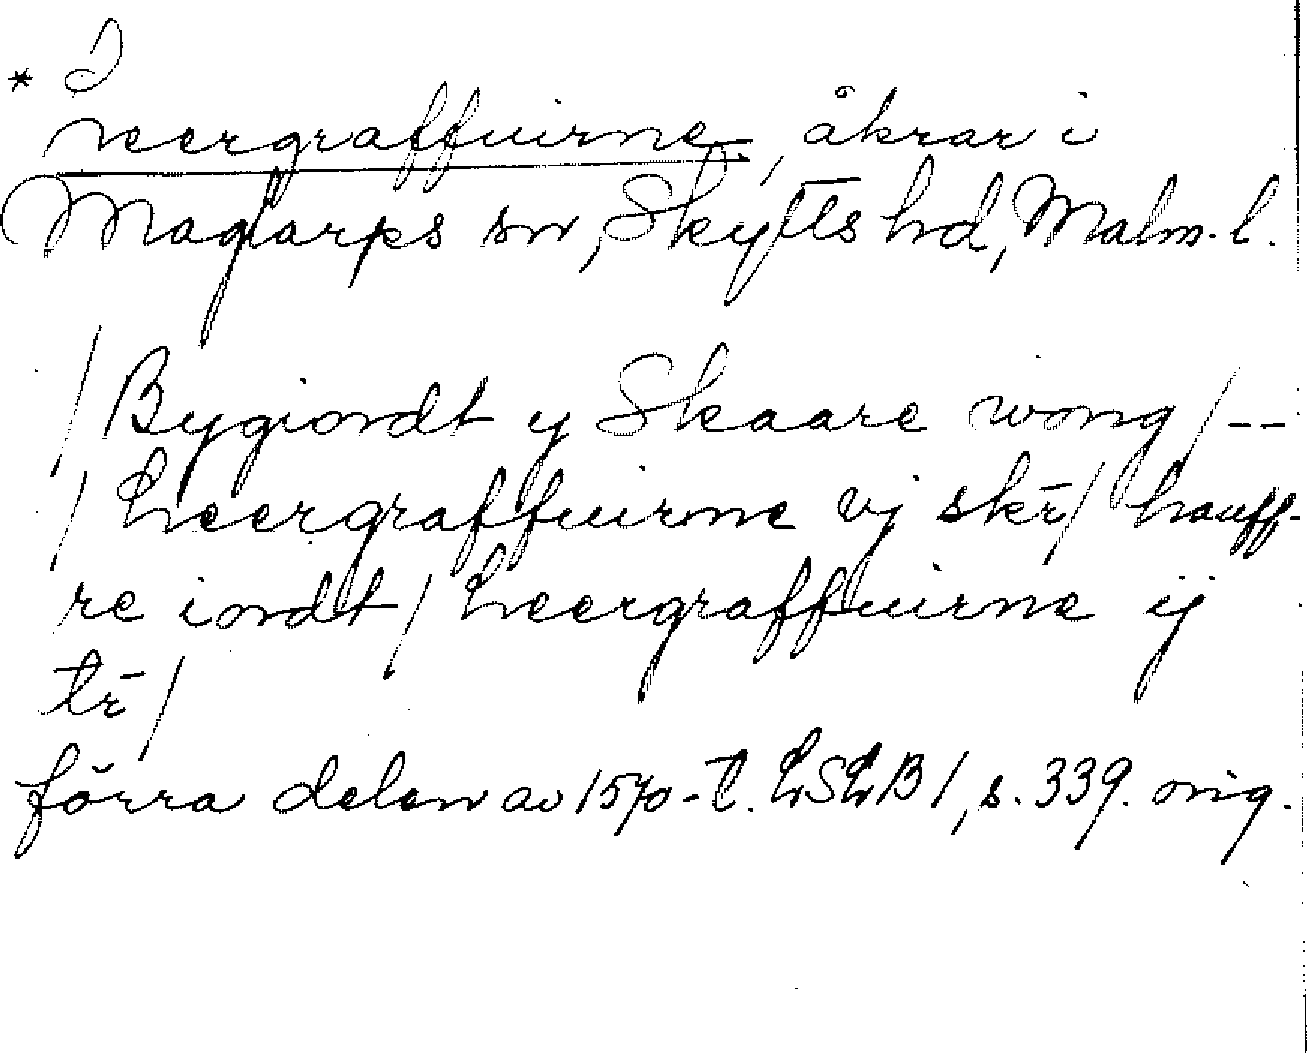 * Leergraffuirne, åkrar i
Maglarps sn, Skytts hd, Malm. l.
/ Bygiordt y Skaare wong / --
/ Leergraffuirne vj skr̄ / hauff-
re iordt / Leergraffuirne ij
tr̄ /
förra delen av 1570-t. LSLB 1, s. 339. orig.